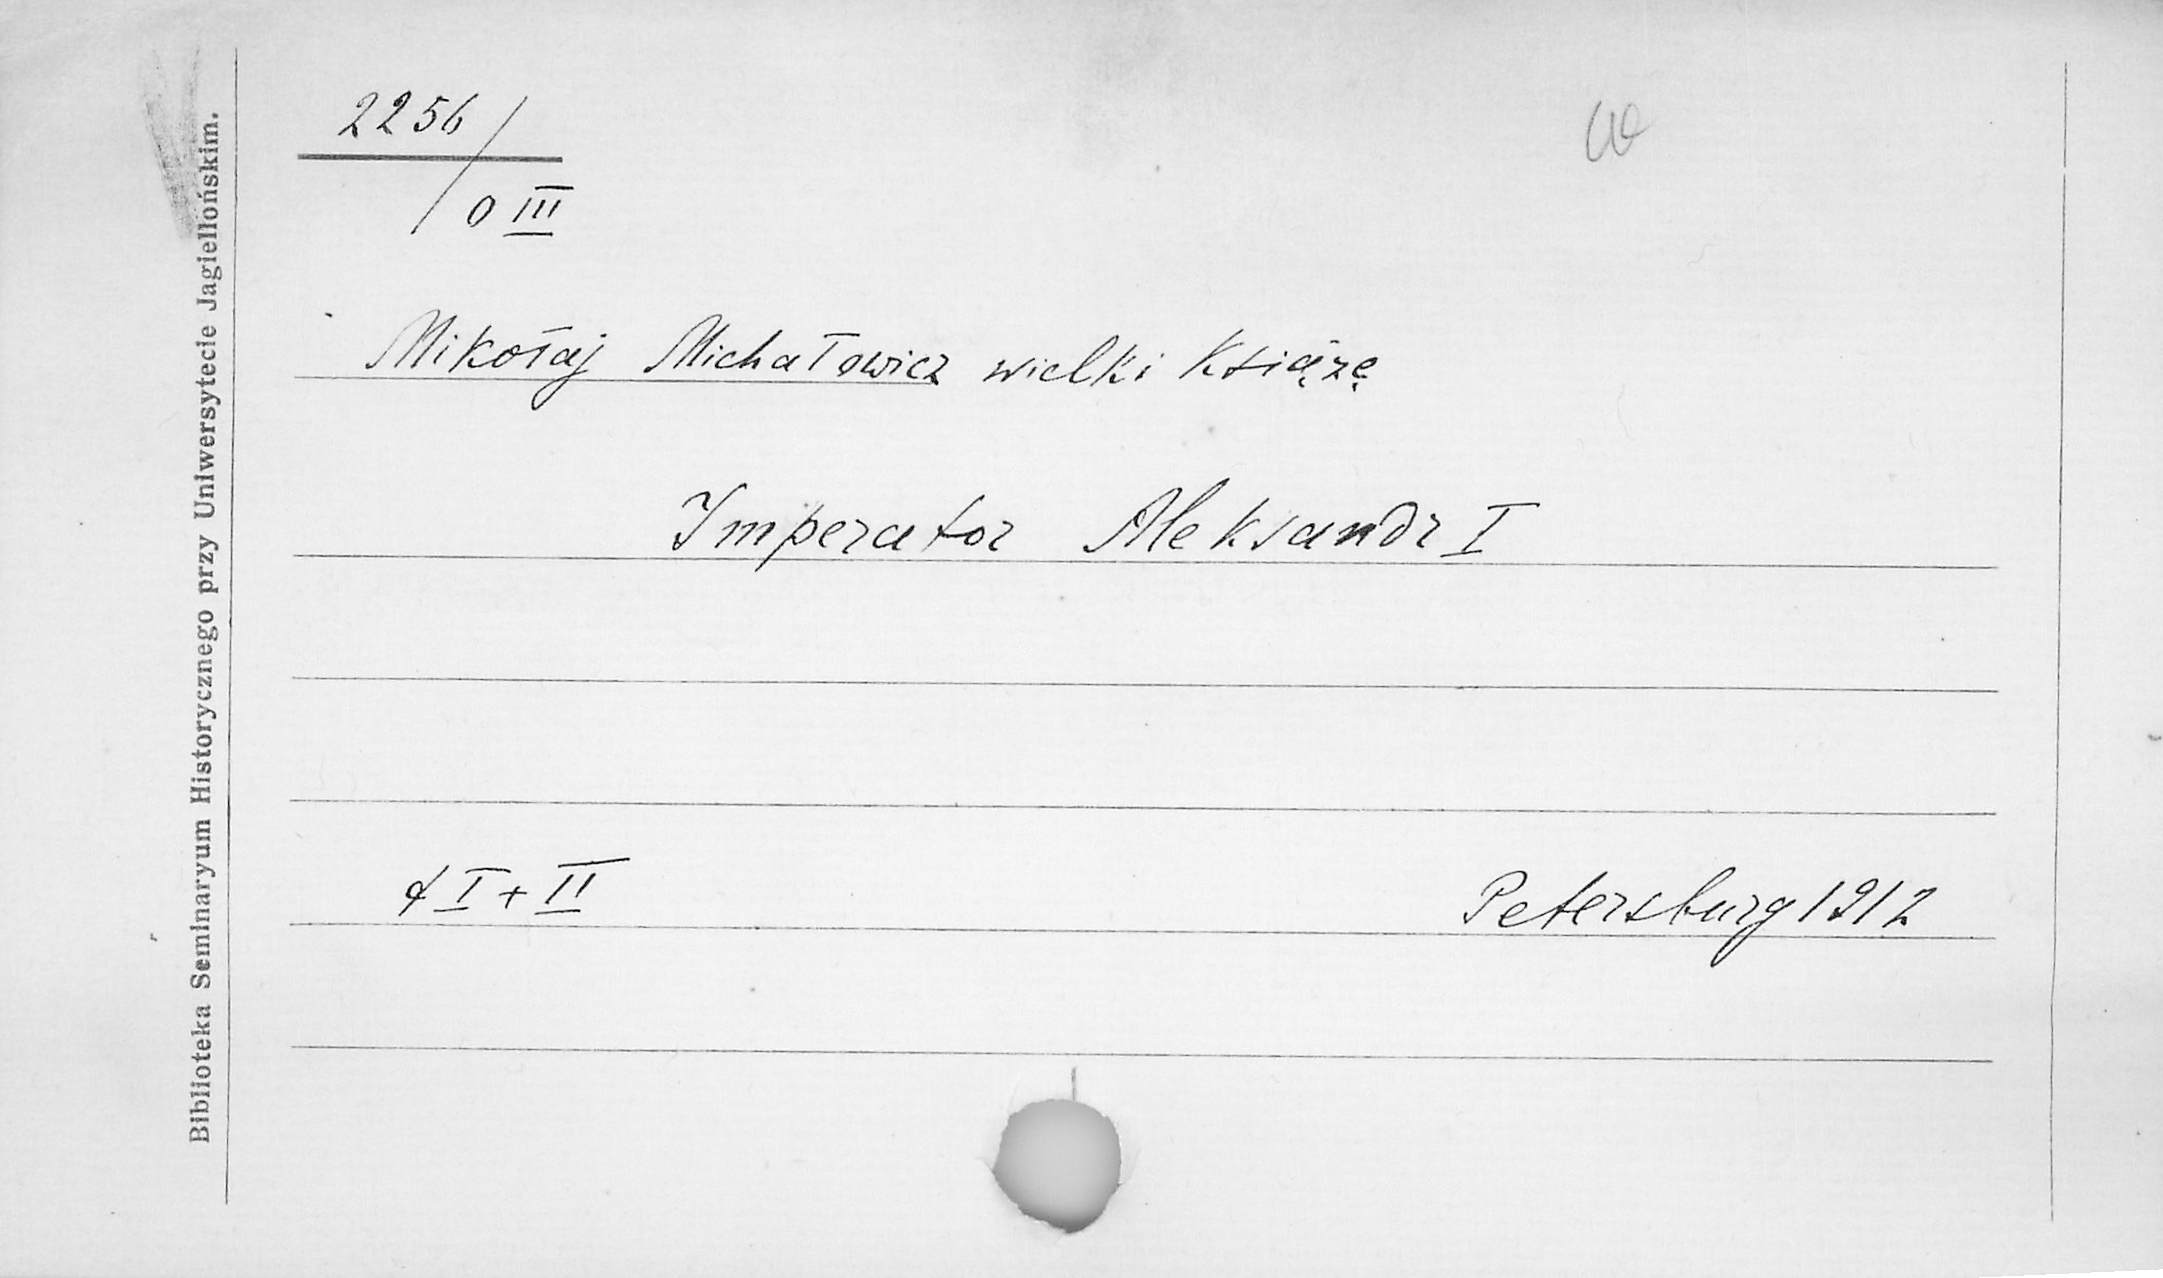 2256/
/0 III
Mikołaj Michałowicz wielki Książę
Imperator Aleksandr I
t I + II
Petersburg 1912
Biblioteka Seminaryum Historycznego przy Uniwersytecie Jagiellońskim.